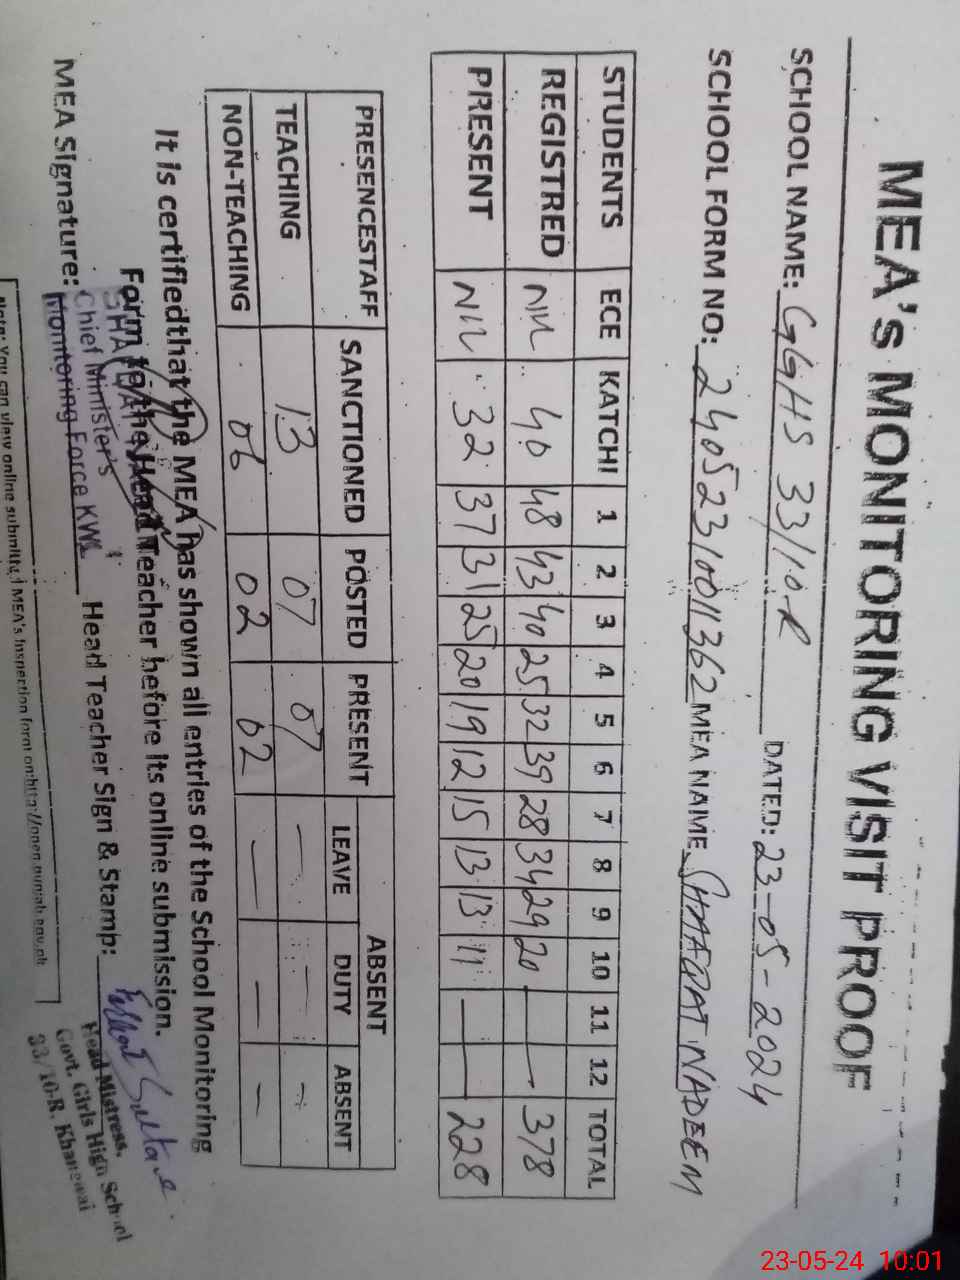 MEA's MONITORING VISIT PROOF
SCHOOL NAME: GGHS 33/10-R DATED: 23-05-2024
SCHOOL FORM NO: 24052310011362 MEA NAME SHAFQAT NADEEM
STUDENTS ECE KATCHI 1 2 3 4 5 6 7 8 9 10 11 12 TOTAL
REGISTRED Nil 40 48 43 40 25 32 39 28 34 29 20 — 378
PRESENT Nil 32 37 31 25 20 19 12 15 13 13 11 — 228
PRESENCESTAFF SANCTIONED POSTED PRESENT ABSENT
LEAVE DUTY ABSENT
TEACHING 13 07 07 — — —
NON-TEACHING 06 02 02 — — —
It is certifiedthat the MEA has shown all entries of the School Monitoring
Form to the Head Teacher before its online submission.
MEA Signature: Head Teacher Sign & Stamp:
Chief Minister's
Monitoring Force KWL
Head Mistress,
Govt. Girls High School
33/10-R, Khanewal
Note: You can view online submitted MEA's Inspection form on:http://open.punjab.gov.pk
23-05-24 10:01